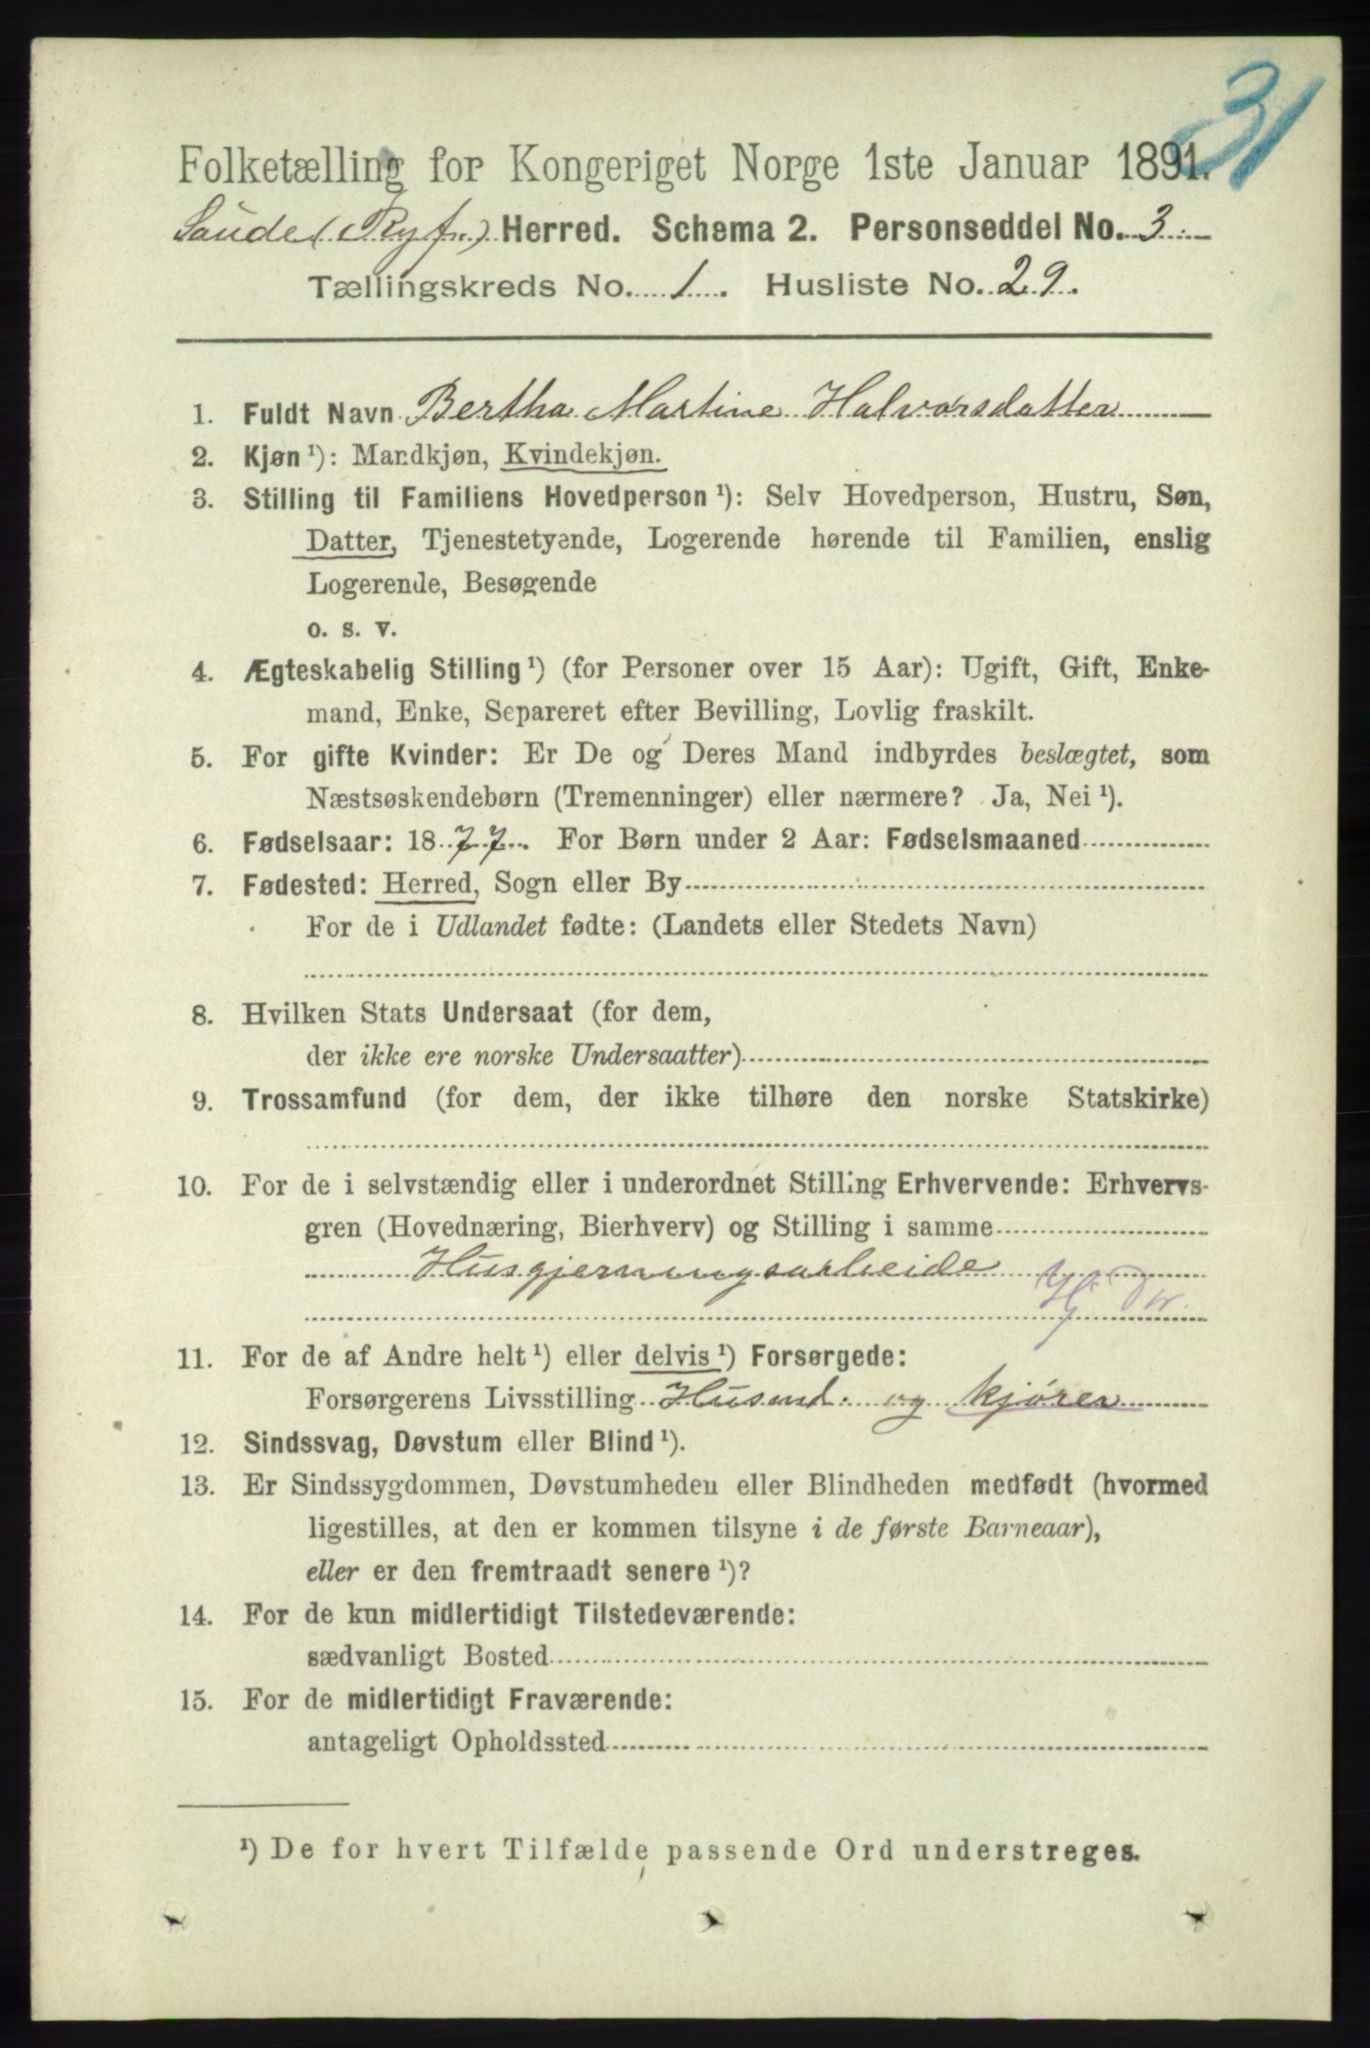 31
Folketælling for Kongeriget Norge 1ste Januar 1891.
Saude (Ryf.) Herred. Schema 2. Personseddel No. 3.
Tællingskreds No. 1. Husliste No. 29.
1. Fuldt Navn Bertha Martine Halvorsdatter
2. Kjøn ¹): Mandkjøn, Kvindekjøn.
3. Stilling til Familiens Hovedperson ¹): Selv Hovedperson, Hustru, Søn,
Datter, Tjenestetyende, Logerende hørende til Familien, enslig
Logerende, Besøgende
o. s. v.
4. Ægteskabelig Stilling ¹) (for Personer over 15 Aar): Ugift, Gift, Enke-
mand, Enke, Separeret efter Bevilling, Lovlig fraskilt.
5. For gifte Kvinder: Er De og Deres Mand indbyrdes beslægtet, som
Næstsøskendebørn (Tremenninger) eller nærmere? Ja, Nei ¹).
6. Fødselsaar: 1877. For Børn under 2 Aar: Fødselsmaaned
7. Fødested: Herred, Sogn eller By
For de i Udlandet fødte: (Landets eller Stedets Navn)
8. Hvilken Stats Undersaat (for dem,
der ikke ere norske Undersaatter)
9. Trossamfund (for dem, der ikke tilhøre den norske Statskirke)
10. For de i selvstændig eller i underordnet Stilling Erhvervende: Erhvervs-
gren (Hovednæring, Bierhverv) og Stilling i samme
Husgjerningsarbeide
11. For de af Andre helt ¹) eller delvis ¹) Forsørgede:
Forsørgerens Livsstilling Husmd. og kjører
12. Sindssvag, Døvstum eller Blind ¹).
13. Er Sindssygdommen, Døvstumheden eller Blindheden medfødt (hvormed
ligestilles, at den er kommen tilsyne i de første Barneaar),
eller er den fremtraadt senere ¹)?
14. For de kun midlertidigt Tilstedeværende:
sædvanligt Bosted
15. For de midlertidigt Fraværende:
antageligt Opholdssted
¹) De for hvert Tilfælde passende Ord understreges.